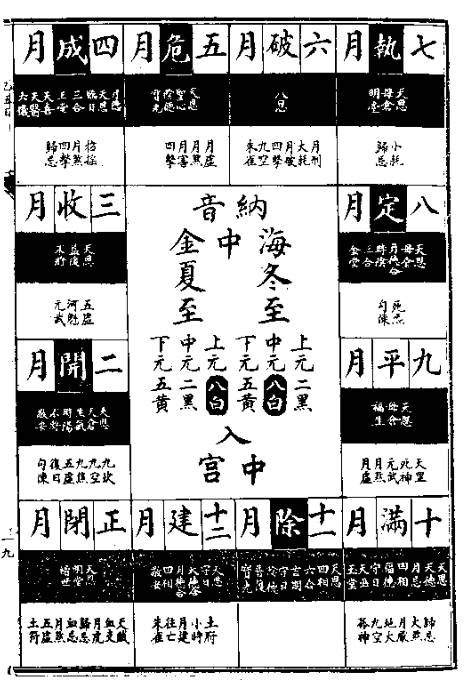 七執月
天恩
母倉
明堂
小耗
歸忌
六破月
月刑
大耗
四擊
九空
朱雀
五危月
天恩
陰德
寶光
月虛
月害
月煞
四擊
四成月
月德
天恩
臨日
三合
天喜
天醫
六儀
招搖
四擊
歸忌
八定月
天恩
母倉
月德合
時陰
三合
金堂
死氣
勾陳
納音
海中金
冬至
上元二黑
中元八白
下元五黃
夏至
上元八白
中元二黑
下元五黃
入中宮
三收月
天恩
益後
不將
五虛
河魁
元武
九平月
天恩
母倉
福生
天罡
死神
元武
月虛
二開月
天恩
天倉
生氣
時陽
不將
敬安
九坎
九空
九焦
五虛
復日
勾陳
十滿月
天恩
天德
月恩
四相
福德
守日
天巫
玉堂
歸忌
大煞
月厭
地火
九空
孤神
十一除月
天恩
四相
六合
吉期
守日
陰德
普護
寶光
十二建月
天恩
守日
天德合
月德合
敬安
土府
小時
月建
往亡
朱雀
正閉月
天恩
明堂
續世
天賊
血支
月虛
歸忌
血忌
月煞
五虛
土符
一九